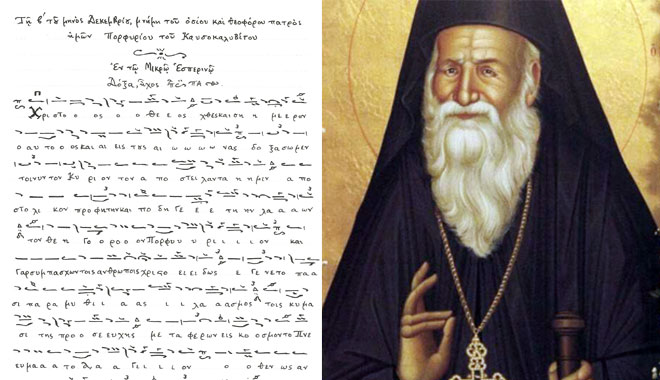 Τῇ β΄ τοῦ μηνὸς Δεκεμβρίου, μνήμη τοῦ ὁσίου καὶ θεοφόρου πατρὸς
ἡμῶν Πορφυρίου τοῦ Καυσοκαλυβίτου
Ἐν τῷ Μικρῷ Ἑσπερινῷ
Δόξα, ἦχος πα
Χριστο ο ος ο ο θε ε ος χθες και ση η με ε ρον
ο αυ το ο ος και αι εις τη ης αι ω ω ω ω νας δο ξα σω μεν
τοι νυν τον Κυ ρι ον τον α πο στει λαν τα η μιν α πο
στο λι κον προφητην και πο δη γε ε ε τη ην λα α α ων
τον θε η γο ο ρο ο ον Πορφυ υ ρι ι ι ι ον και
γαρ συμπασχων τοις ανθρωποις χρι στο ει ει δως ε γε νε το πα α
σι πα ρα μυ θι ι α ας ι ι λα α ασ μος τοις κυ μα
σι της προ ο σε ευχης με τα φε ρων εις κο ο σμον το Πνε
ευ μα α α το Α α α Γι ι ι ι ον ο ο θεν ως αν